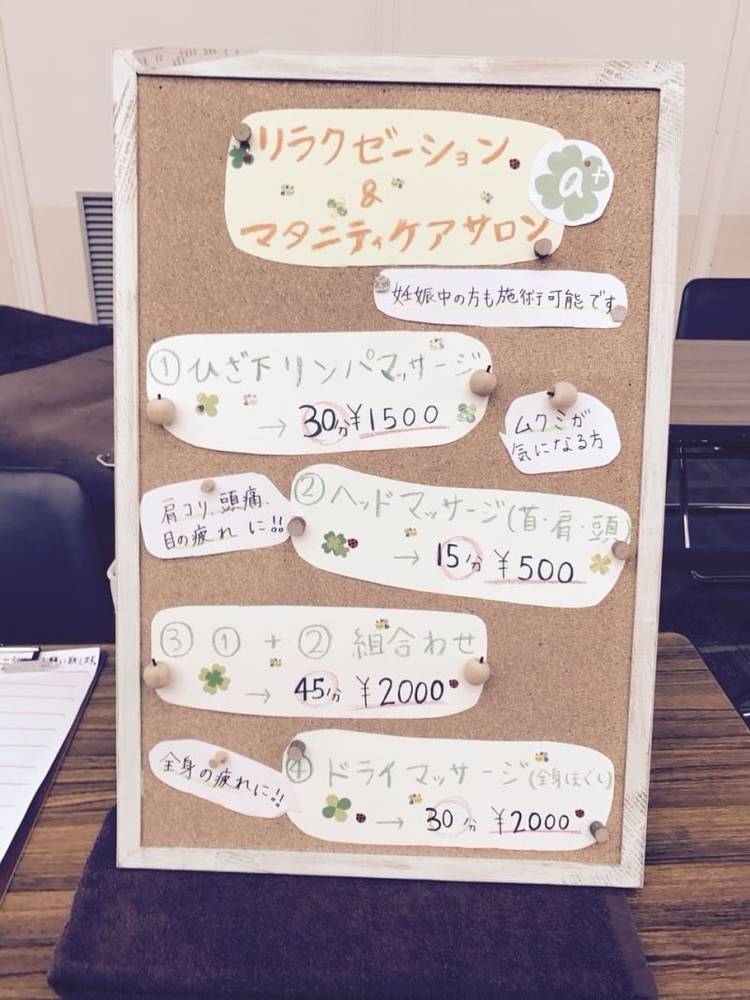 リラクゼーション
&
マタニティケアサロン
a+
妊娠中の方も施術可能です
①ひざ下リンパマッサージ
→ 30分¥1500
ムクミが
気になる方
肩コリ、頭痛、
目の疲れに!!
②ヘッドマッサージ(首・肩・頭)
→ 15分 ¥500
③ ① + ② 組合わせ
→ 45分 ¥2000
全身の疲れに!!
④ドライマッサージ(全身ほぐし)
→ 30分 ¥2000